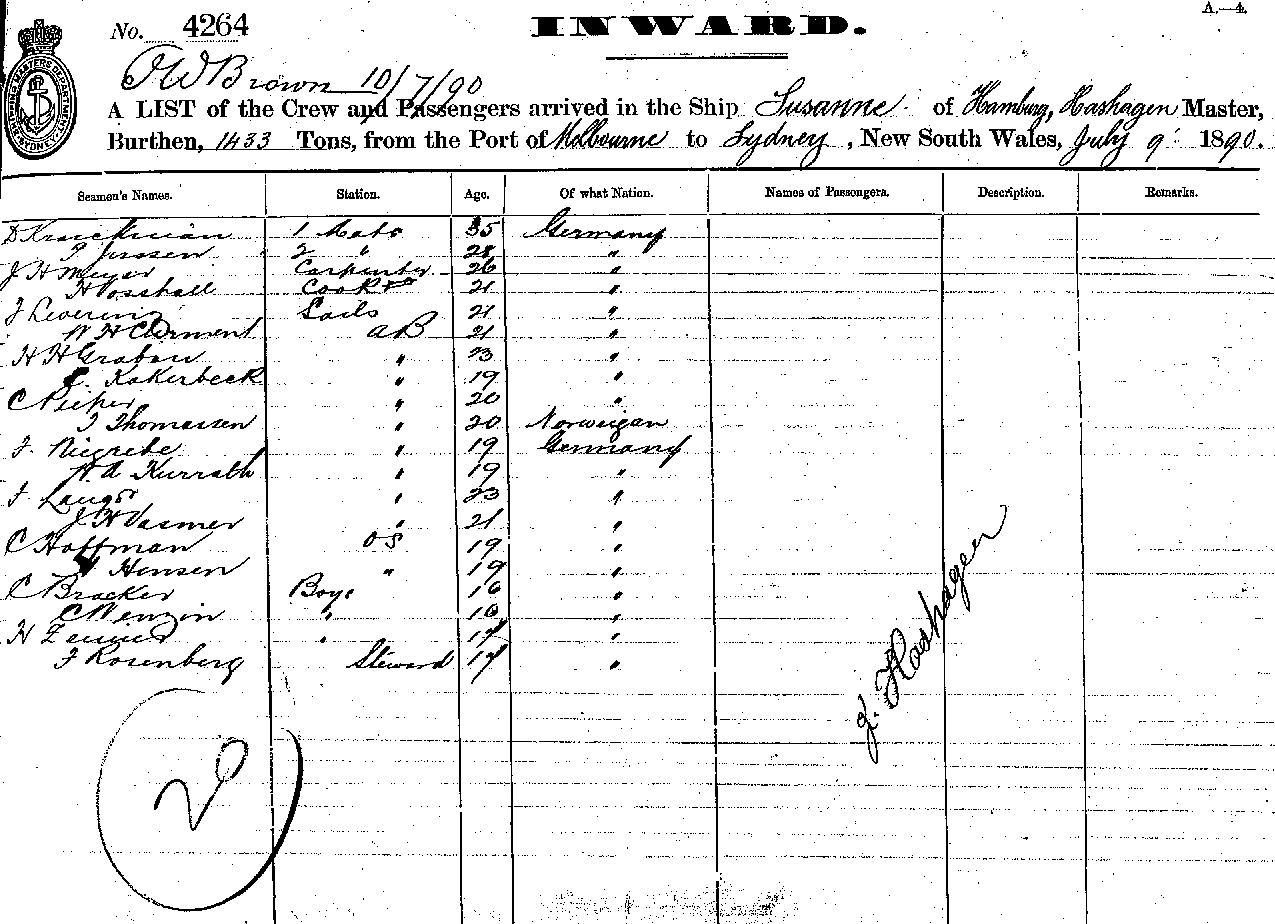 A.—4.
No. 4264 INWARD.
O W Brown 10/7/90
A LIST of the Crew and Passengers arrived in the Ship Susanne of Hamburg, Hashagen Master,
Burthen, 1433 Tons, from the Port of Melbourne to Sydney, New South Wales, July 9 1890.
SHIPPING MASTERS DEPARTMENT SYDNEY
Seamen's Names. Station. Age. Of what Nation. Names of Passengers. Description. Remarks.
1 Mate 35 Germany
2 " 28 "
J H Meyer Carpenter 26 "
H Vosshall Cook 21 "
J Levering Sails 21 "
W H Clement AB 21 "
H H Grabau " 23 "
Kokerbeck " 19 "
C Pieper " 20 "
T Thomassen " 20 Norweigan
F. Niegrebe " 19 Germany
W A Kurrath " 19 "
" 23 "
J H Vasmer " 21 "
C Hoffman OS 19 "
H Hensen " 19 "
C Bracker Boys 16 "
C Wenzin " 16 "
H " 17 "
F Rosenberg Steward 17 "
J. Hashagen
20